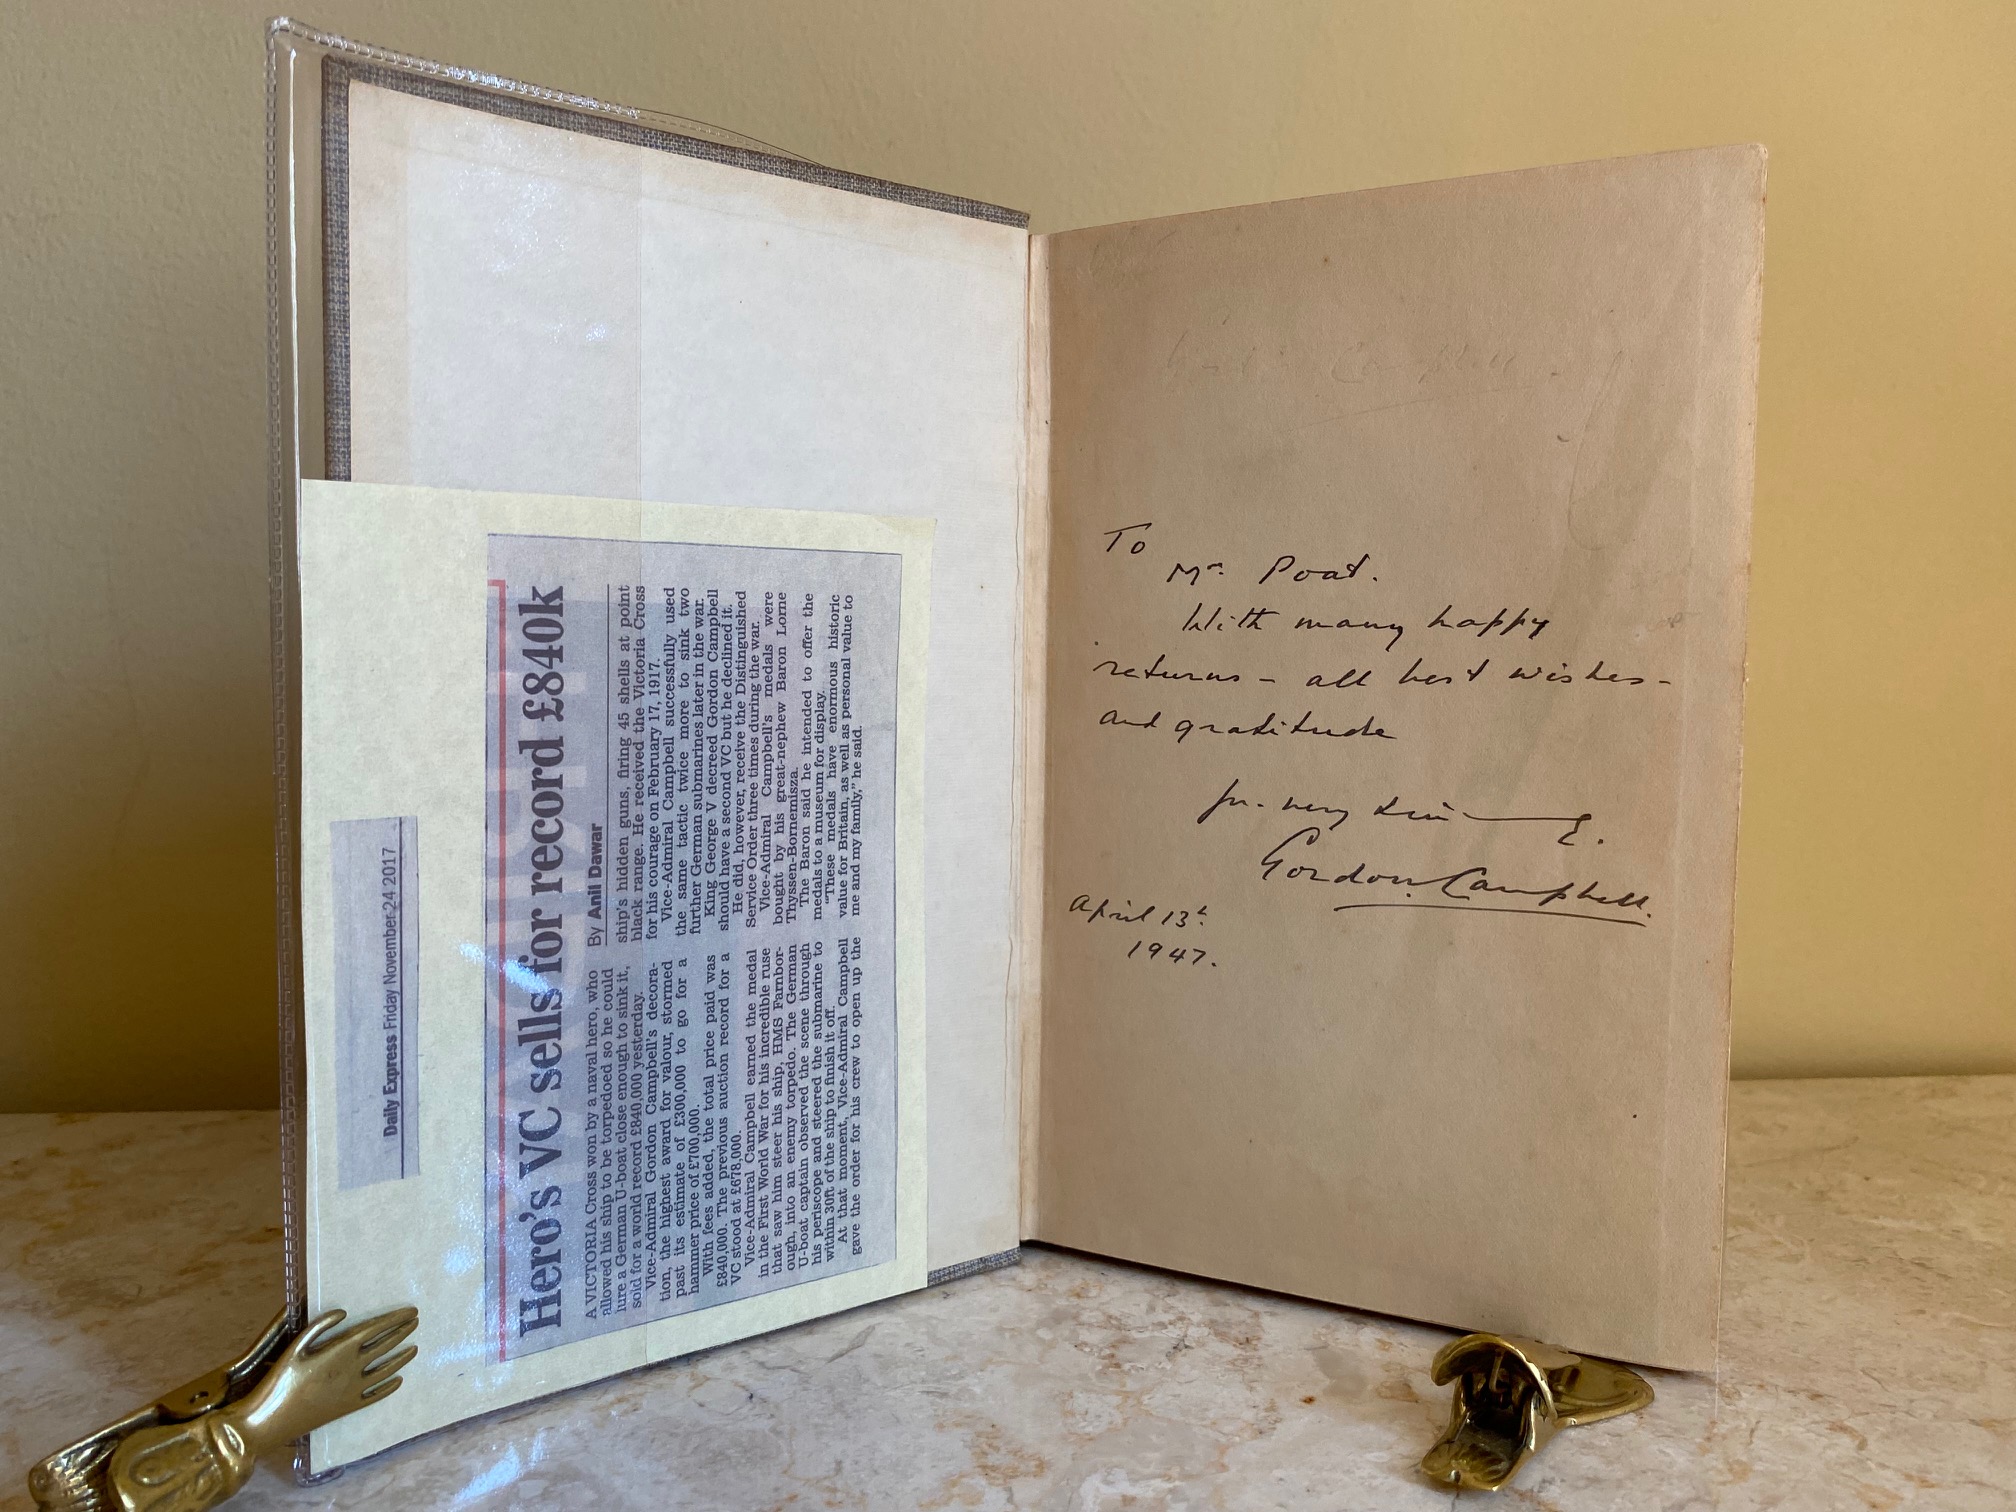 Daily Express Friday November 24 2017
Hero's VC sells for record £840k
A VICTORIA Cross won by a naval hero, who
allowed his ship to be torpedoed so he could
lure a German U-boat close enough to sink it,
sold for a world record £840,000 yesterday.
Vice-Admiral Gordon Campbell's decora-
tion, the highest award for valour, stormed
past its estimate of £300,000 to go for a
hammer price of £700,000.
With fees added, the total price paid was
£840,000. The previous auction record for a
VC stood at £678,000.
Vice-Admiral Campbell earned the medal
in the First World War for his incredible ruse
that saw him steer his ship, HMS Farnbor-
ough, into an enemy torpedo. The German
U-boat captain observed the scene through
his periscope and steered the submarine to
within 30ft of the ship to finish it off.
At that moment, Vice-Admiral Campbell
gave the order for his crew to open up the
By Anil Dawar
ship's hidden guns, firing 45 shells at point
black range. He received the Victoria Cross
for his courage on February 17, 1917.
Vice-Admiral Campbell successfully used
the same tactic twice more to sink two
further German submarines later in the war.
King George V decreed Gordon Campbell
should have a second VC but he declined it.
He did, however, receive the Distinguished
Service Order three times during the war.
Vice-Admiral Campbell's medals were
bought by his great-nephew Baron Lorne
Thyssen-Bornemisza.
The Baron said he intended to offer the
medals to a museum for display.
"These medals have enormous historic
value for Britain, as well as personal value to
me and my family," he said.
To
Mr. Poat.
With many happy
returns - all best wishes -
and gratitude
very
Gordon Campbell.
April 13th
1947.